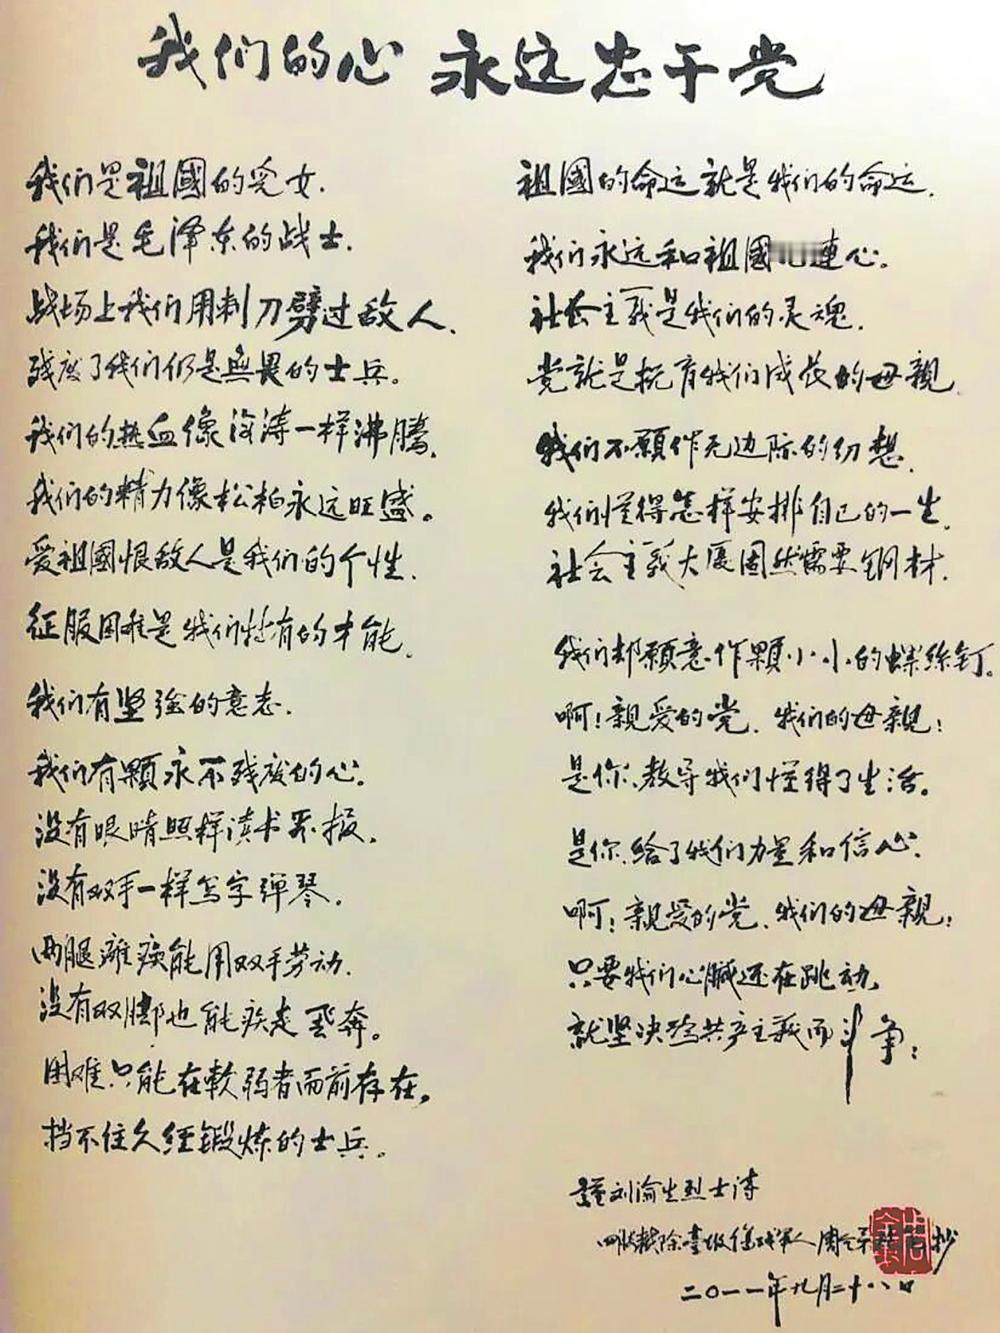 我们的心 永远忠于党
我们是祖國的兒女.
我们是毛泽东的战士.
战场上我们用刺刀劈过敌人.
残废了我们仍是無畏的士兵。
我们的热血像波涛一样沸腾.
我们的精力像松柏永远旺盛。
爱祖國恨敌人是我们的个性.
征服困难是我们特有的才能.
我们有坚强的意志.
我们有颗永不残废的心.
没有眼睛照样读书累报.
没有双手一样写字弹琴.
两腿瘫痪能用双手劳动.
没有双脚也能疾走飞奔。
困难只能在軟弱者面前存在.
挡不住久经锻炼的士兵.
祖國的命运就是我们的命运.
我们永远和祖國連心。
社会主義是我们的灵魂.
党就是抚育我们成长的母親.
我们不願作无边际的幻想.
我们懂得怎样安排自己的一生.
社会主義大厦固然需要钢材.
我们却願意作颗小小的螺絲钉。
啊!親爱的党.我们的母親!
是你.教导我们懂得了生活。
是你.给了我们力量和信心.
啊!親爱的党.我们的母親!
只要我们心臟还在跳动.
就坚决为共产主義而斗争!
刘渝生烈士诗
除 人周 抄
二〇一一年九月二十八日